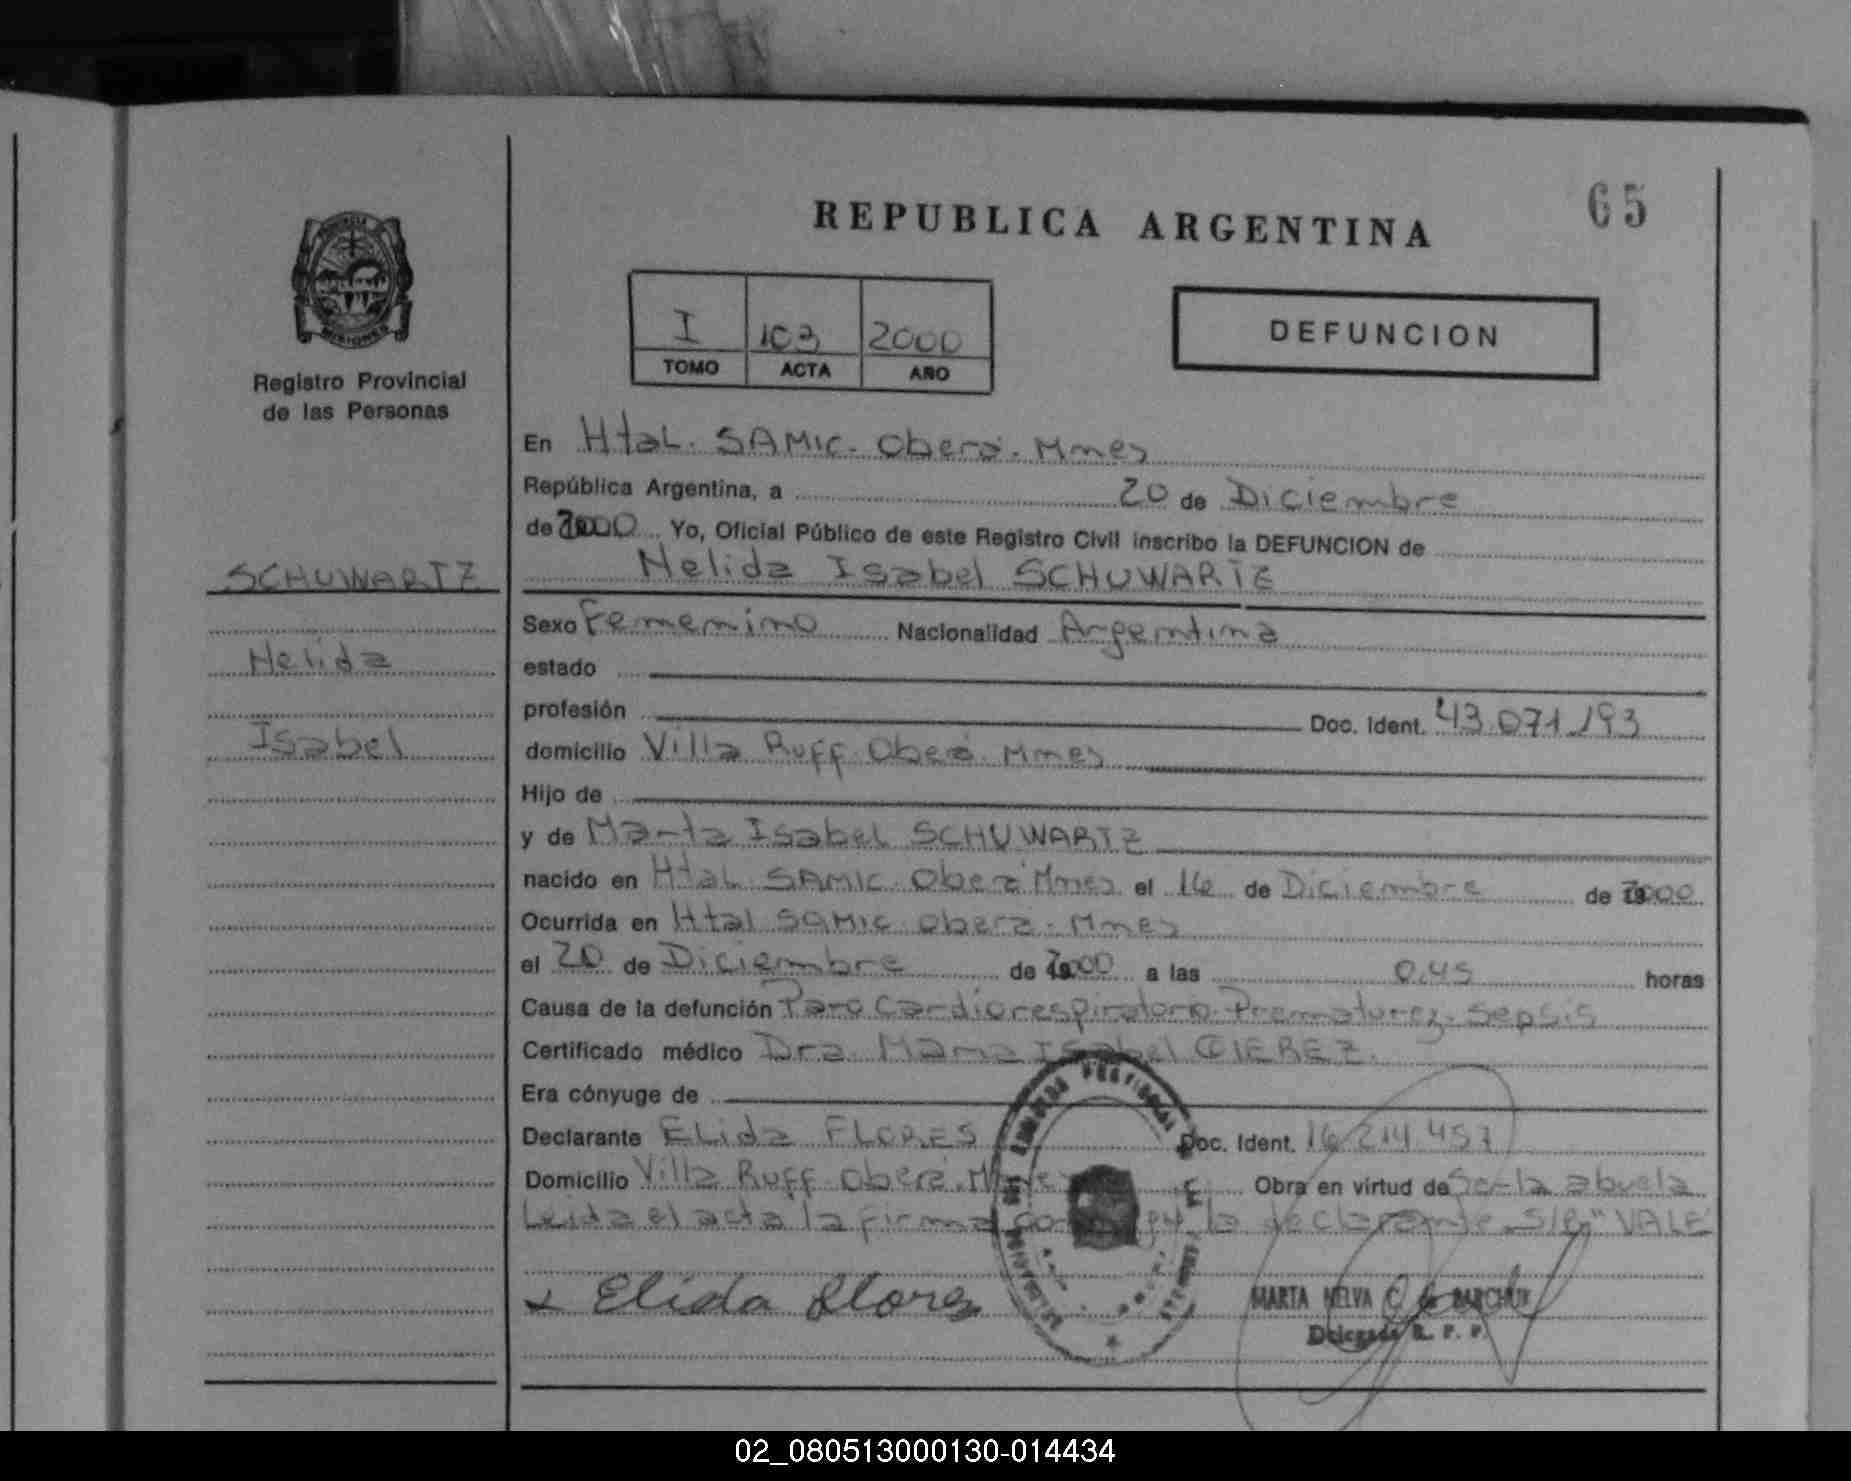 65
REPUBLICA ARGENTINA
MISIONES
I 103 2000
TOMO ACTA AÑO
DEFUNCION
Registro Provincial
de las Personas
En Htal. SAMIC. Oberá. Mnes
República Argentina, a 20 de Diciembre
de 2000 Yo, Oficial Público de este Registro Civil inscribo la DEFUNCION de
SCHUWARTZ
Nelida Isabel SCHUWARTZ
Sexo Femenino Nacionalidad Argentina
Nelida
estado
profesión Doc. Ident. 43.071.193
Isabel
domicilio Villa Ruff. Oberá. Mnes
Hijo de
y de Marta Isabel SCHUWARTZ
nacido en Htal. SAMIC. Oberá Mnes el 16 de Diciembre de 2000
Ocurrida en Htal SAMIC. Oberá. Mnes
el 20 de Diciembre de 2000 a las 0.45 horas
Causa de la defunción Paro Cardiorespiratorio. Prematurez. Sepsis
Certificado médico Dra. Isabel
Era cónyuge de
Declarante Elida FLORES Doc. Ident. 16.214.457
Domicilio Villa Ruff. Oberá. Mnes Obra en virtud de Ser la abuela
Leida el acta la firma la declarante. S/B "VALE
Elida Flores
MARTA NELVA C. de BARCHUK
Delegada R. P. P.
02_080513000130-014434